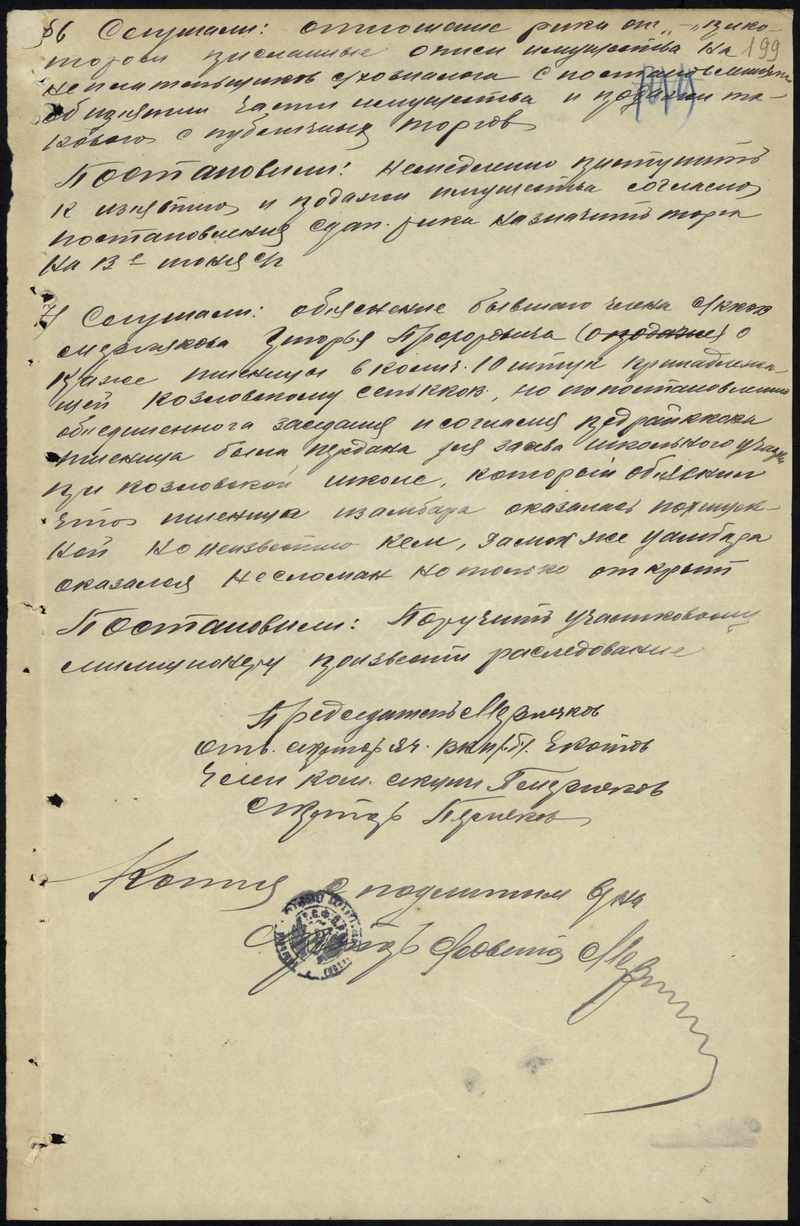 §6 Слушали: отношение рика от "-" при ко-
тором присланные описи имущества на 199
неплательщиков с/хозналога с постановлением
об изъятии части имущества и продажи та-
кового с публичных торгов
Постановили: Немедленно приступить
к изъятию и продажи имущества согласно
постановления рика назначить торги
на 13е июня
7) Слушали: объяснение бывшего члена
Мерзлякова Егорья Прохоровича о
краже пшеницы в колич. 10 штук принадлежа-
щей Козловскому селькком, но по постановлению
объединенного заседания и согласия
пшеница была передана для засева школьного участка
при Козловской школе, который объяснил
что пшеница из амбара оказалась похищен-
ной но неизвестно кем, замок же у амбара
оказался не сломан но только открыт
Постановили: Поручить участковому
милиционеру произвести раследование
Председатель Мерзляков
отв. секретарь яч. ВКП(б)
Член ком. секции П Мерзляков
Секретарь Пермяков
Копия с подлинным верна
Секретарь с/совета